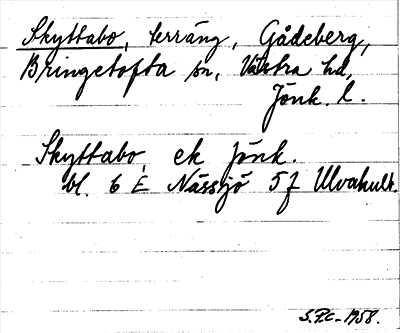 Skyttabo, terräng, Gådeberg,
Bringetofta sn, Västra hd,
Jönk. l.
Skyttabo, ek Jönk.
bl. 6 E Nässjö 5f Ulvahult.
S.P.C. 1958.